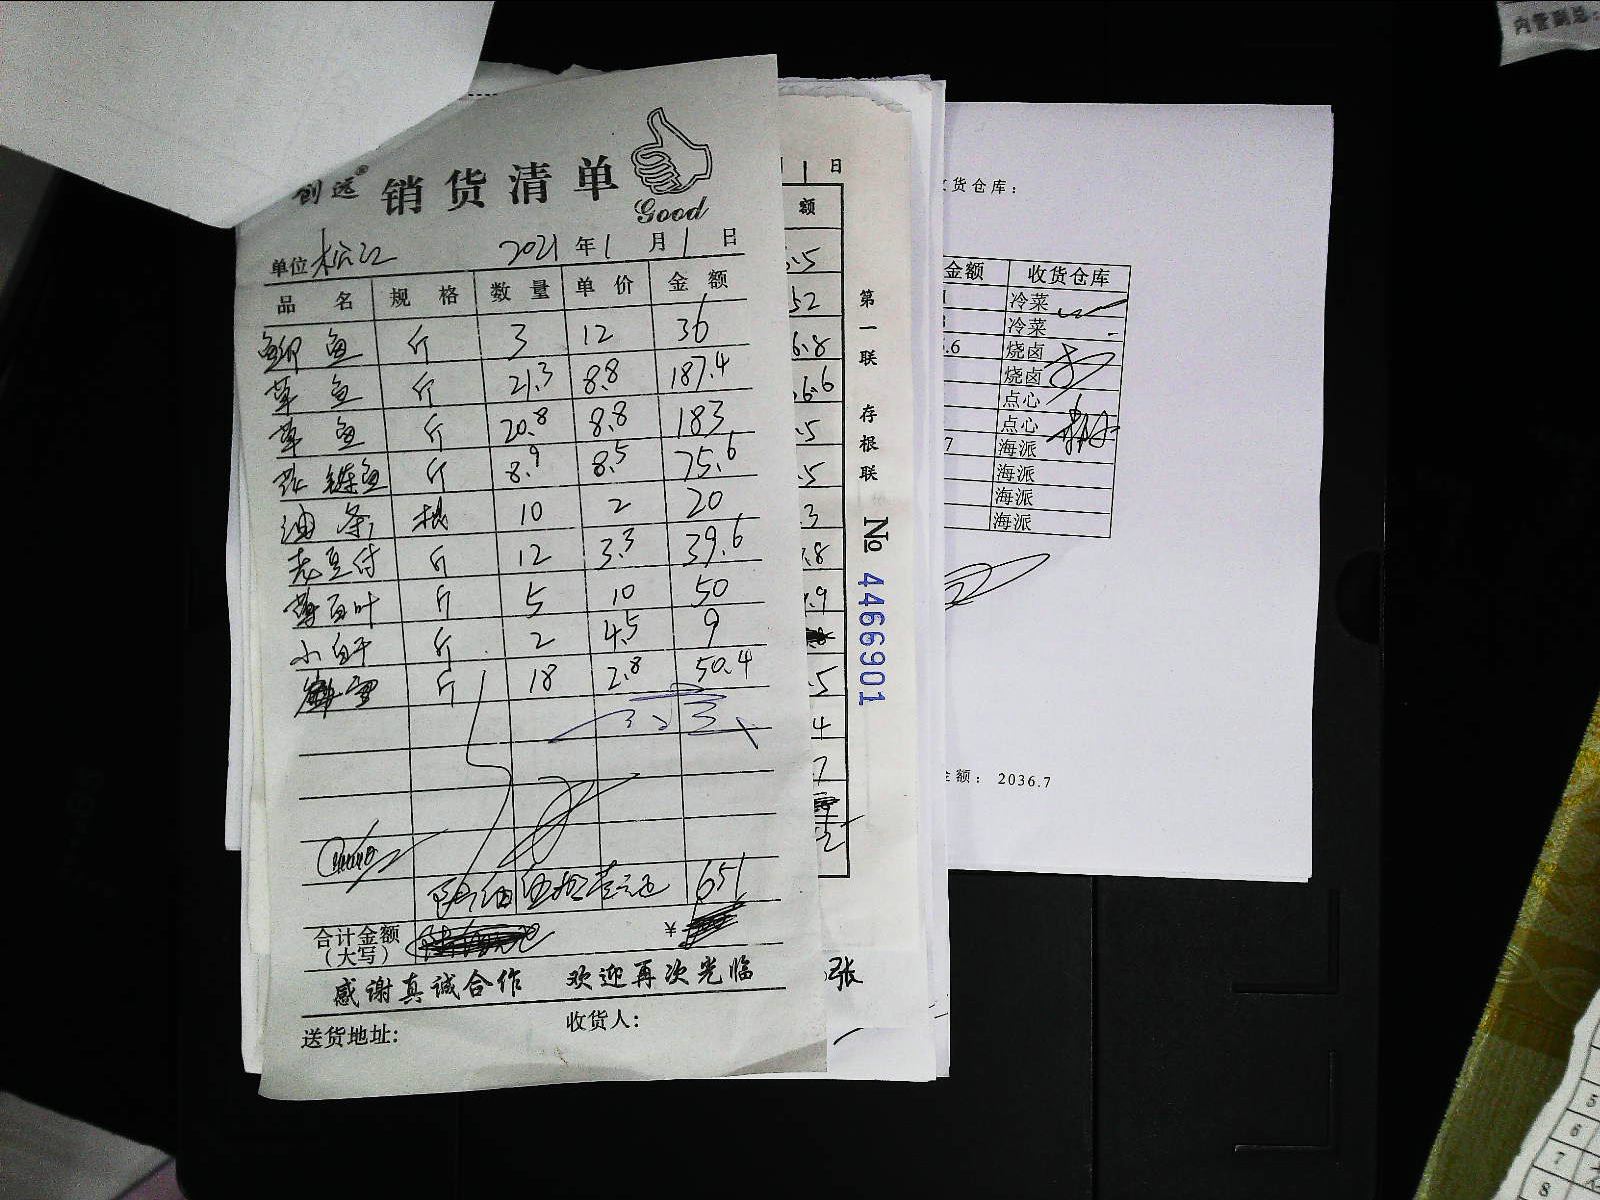 创远® 销货清单
Good
单位 松江 2021年1月1日
品名 规格 数量 单价 金额
鲫鱼 斤 3 12 36
草鱼 斤 21.3 8.8 187.4
草鱼 斤 20.8 8.8 183
花鲢鱼 斤 8.9 8.5 75.6
油条 根 10 2 20
老豆付 斤 12 3.3 39.6
薄百叶 斤 5 10 50
小白干 斤 2 4.5 9
斤 18 2.8 50.4
651
合计金额
(大写)
¥
感谢真诚合作 欢迎再次光临
送货地址:
收货人:
1日
额
.5
52
6.8
6.6
.5
.5
.3
.8
.9
.5
4
7
第一联 存根联
№ 4466901
张
货仓库:
金额 收货仓库
冷菜
冷菜
.6 烧卤
烧卤
点心
点心
7 海派
海派
海派
海派
额: 2036.7
5
6
7
8